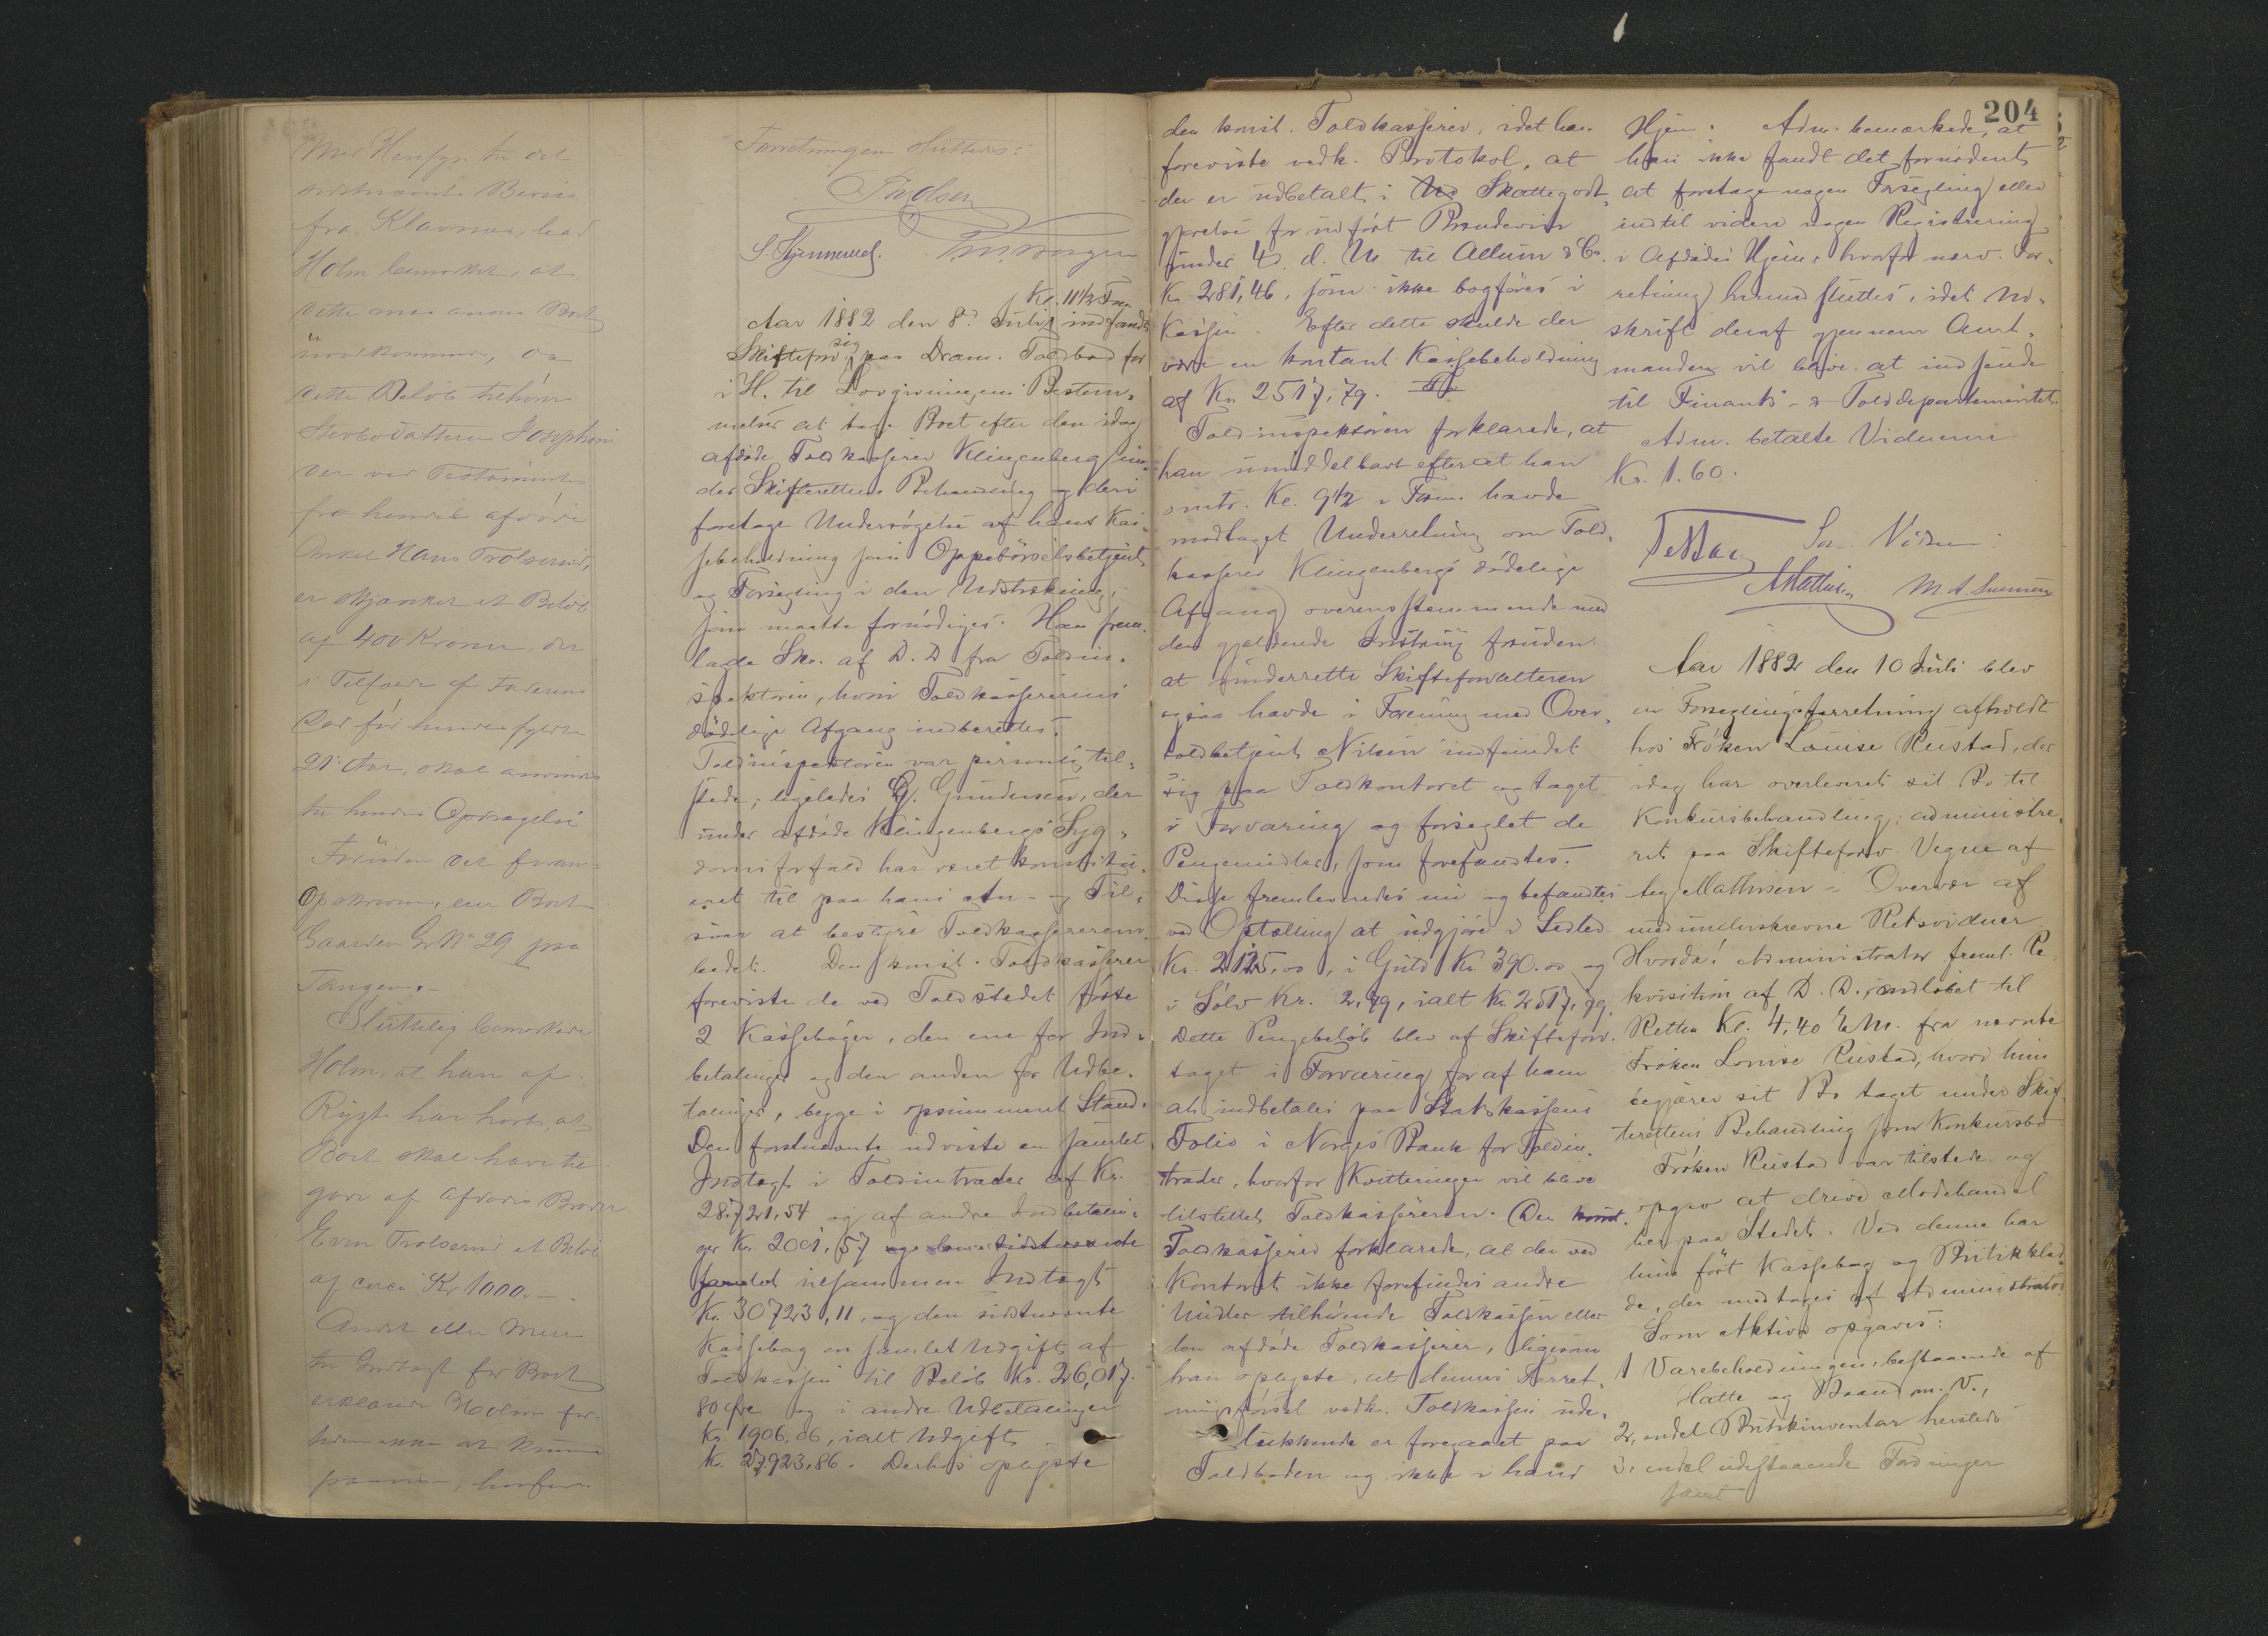 Med Hensyn til det
sidstnævnte Bevis
fra Klavnæs, bad
Holm bemærket, at
dette maa anses Boet
uvedkommende, da
dette Beløb tilhører
Stervbodatteren Josephine
der ved Testament
fra hendes afdøde
Onkel Hans Trolserud,
er skjænket et Beløb
af 400 Kroner, der
i Tilfælde af Faderens
Død før hendes fyldte
21 Aar, skal anvendes
til hendes Opdragelse
Foruden det foran
Opskrevne, eier Boet
Gaarden Gr No. 29 paa
Tangen.–
Sluttelig bemærkede
Holm, at han af
Rygte har hørt, at
Boet skal have til
gode af Afdødes Broder
Even Trolserud et Beløb
af circa Kr 1000.–
Andet eller mere
til Indtægt for Boet
erklærede Holm for
tiden ikke at kunne
paavise, hvorfor
Forretningen sluttedes:
S. Hjemmerud.
Kl. 11 1/2 Fm
Aar 1882 den 8de Juli indfandt
Skifteforv. sig paa Dram. Toldbod for
i H. til Lovgivningens Bestem-
melser at tage Boet efter den idag
afdøde Toldkasserer Klingenberg un-
der Skifterettens Behandling og deri
foretage Undersøgelse af hans Kas-
sebeholdning som Oppebørselsbetjent
og Forsegling i den Udstrækning,
som maatte fornødiges. Han frem-
lagde Skr. af D. D. fra Toldin-
spektøren, hvori Toldkassererens
dødelige Afgang indberettes.
Toldinspektøren var personlig til-
stede; ligeledes G. Gundersen, der
under afdøde Klingenbergs Syg-
domsforfald har været konstitu-
eret til paa hans An- og Til-
svar at bestyre Toldkassererem-
bedet. Den konst. Toldkasserer
foreviste de ved Toldstedet førte
2 Kassebøger, den ene for Ind-
betalinger og den anden for Udbe-
talinger, begge i opsummeret Stand.
Den førstnævnte udviste en samlet
Indtægt i Toldintrader af Kr.
28.721,54 og af andre Indbetalin-
ger Kr. 2001,57 og den sidstnævnte
samlet tilsammen Indtægt
Kr. 30723,11, og den sidstnævnte
Kassebog en samlet Udgift af
Toldkassen til Beløb Kr. 26,017.
80 Øre og i andre Udbetalinger
Kr 1906,06, ialt Udgift
Kr. 27.923,86. Derhos oplyste
204
den konst. Toldkasserer, idet han
foreviste vedk. Protokol, at
der er udbetalt i Skattegodt-
gjørelse for udført Brændevin
under 4 d. M. til Allum & Co.
Kr 281,46, som ikke bogføres i
Kassen. Efter dette skulde der
være en kontant Kassebeholdning
af Kr. 2517,79.
Toldinspektøren forklarede, at
han umiddelbart efter at han
omtr. Kl. 9 1/2 i Form. havde
modtaget Underretning om Told-
kasserer Klingenbergs dødelige
Afgang overensstemmende med
den gjældende Instrux foruden
at underrette Skifteforvalteren
ogsaa havde i Forening med Over-
toldbetjent Nilsen indfundet
sig paa Toldkontoret og taget
i Forvaring og forseglet de
Pengemidler, som forefandtes.
Disse fremleveredes nu og befandtes
ved Optælling at udgjøre i Sedler
Kr. 2125,00, i Guld Kr 390.00 og
i Sølv Kr. 2,79, ialt Kr. 2517,79.
Dette Pengebeløb blev af Skifteforv.
taget i Forvaring for af ham
at indbetales paa Statskassens
Folio i Norges Bank for Toldin-
trader, hvorfor Kvitteringen vil blive
tilstillet Toldkassereren. Den konst.
Toldkasserer forklarede, at der ved
Kontoret ikke forefindes andre
Midler tilhørende Toldkassen eller
den afdøde Toldkasserer, ligesom
han oplyste, at dennes Forret-
ningsførsel vedk. Toldkassen ude-
lukkende er foregaaet paa
Toldboden og ikke i hans
Hjem. Adm. bemærkede, at
han ikke fandt det fornødent
at foretage nogen Forsegling eller
indtil videre nogen Registrering
i Afdødes Hjem, hvorfor nærv. For-
retning hermed sluttes, idet Ud-
skrift deraf gjennem Amt-
manden vil blive at indsende
til Finants- & Tolddepartementet.
Adm. betalte Vidnerne
Kr. 1.60.
Som Vidner:
AMathisen M. A. Svensen
Aar 1882 den 10 Juli blev
en Forseglingsforretning afholdt
hos Frøken Louise Rustad, der
idag har overleveret sit Bo til
Konkursbehandling; administre-
ret paa Skifteforv. Vegne af
fuldm. Mathisen i Overvær af
medunderskrevne Retsvidner
Hvorda: Administrator freml. Re-
kvisition af D. D., indløbet til
Retten Kl. 4,40 EM. fra nævnte
Frøken Louise Rustad, hvori hun
begjærer sit Bo taget under Skif-
terettens Behandling som Konkursbo
Frøken Rustad var tilstede og
opgav at drive Modehandel
her paa Stedet. Ved denne har
hun ført Kassebog og Butikklad-
de, der medtages af Administrator.
Som Aktiva opgaves:
1 Varebeholdningen, bestaaende af
Hatte og Baand m. V.,
2, endel Butikinventar hersteds
3, endel udestaaende Fordringer
samt